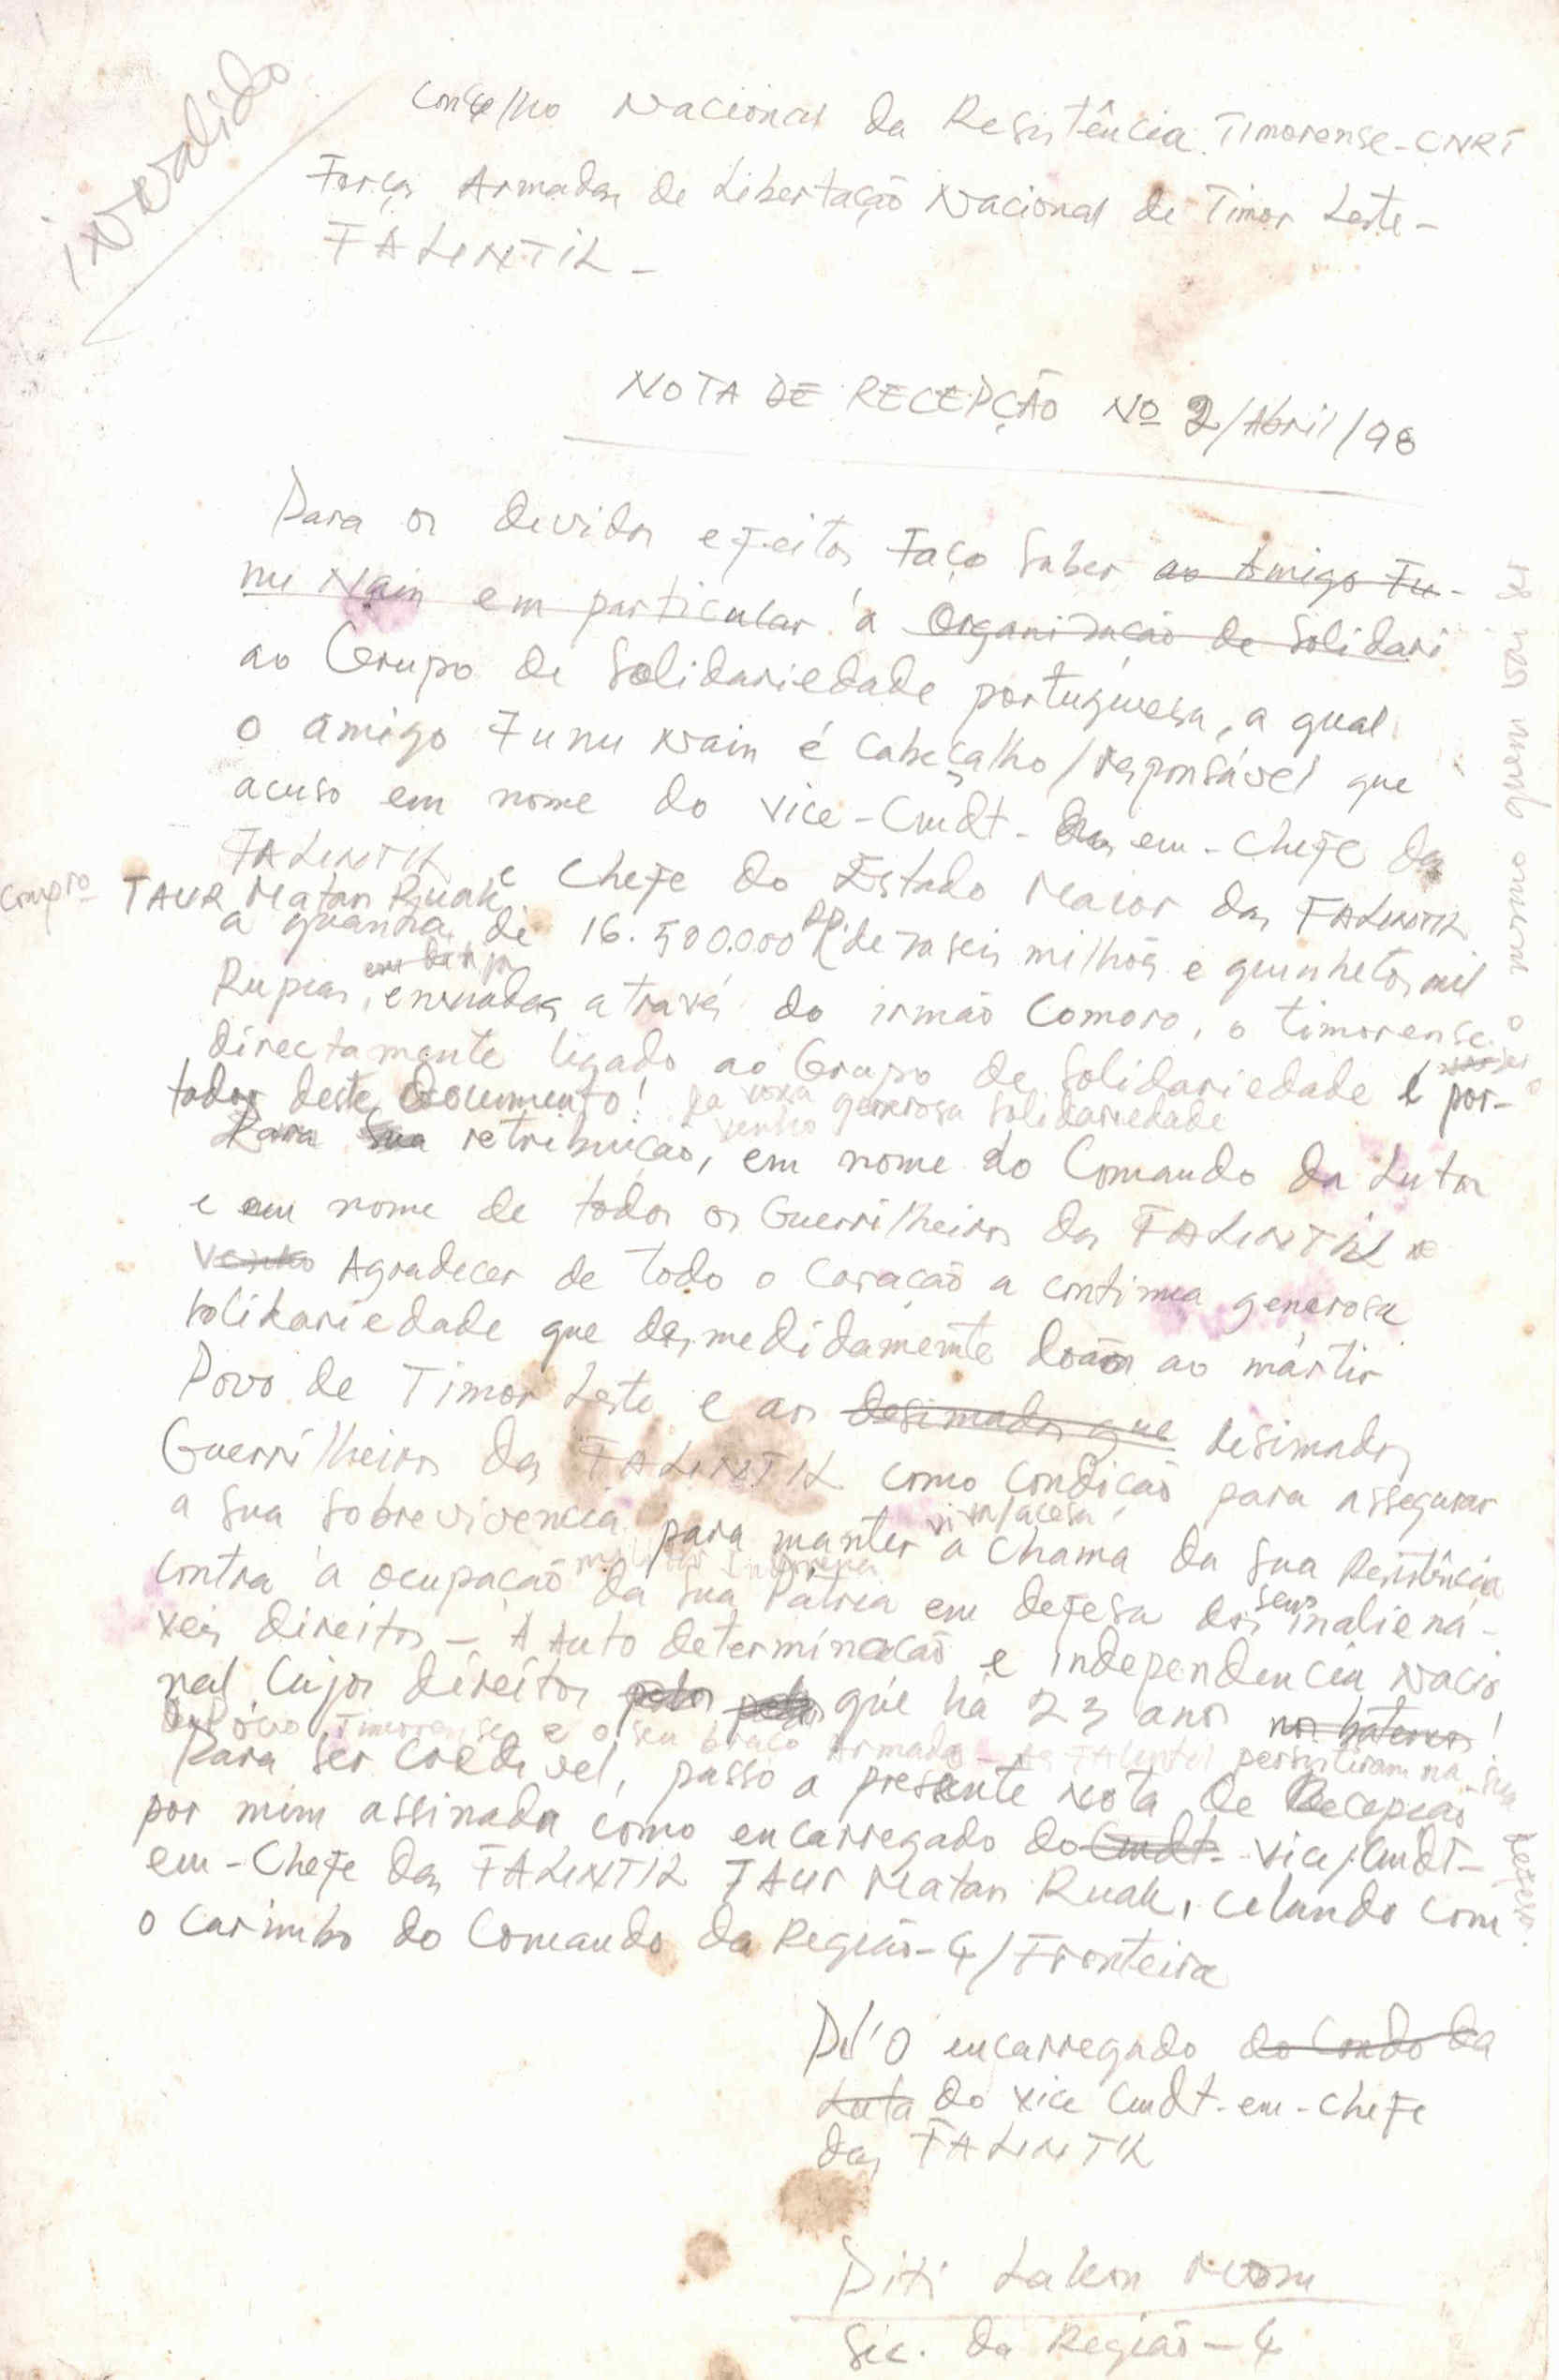 invalido
Conselho Nacional da Resistência Timorense - CNRT
Forças Armadas de Libertação Nacional de Timor Leste -
FALINTIL -
NOTA DE RECEPÇÃO Nº 2/Abril/98
Para os devidos efeitos Faço Saber ao Amigo Fu-
nu Nain em particular à Organização de Solidari
ao Grupo de Solidariedade portuguesa, a qual
o amigo Funu Nain é Cabeçalho/responsável que
acuso em nome do vice-Cmdt- em-Chefe das
FALINTIL e Chefe do Estado Maior das FALINTIL
TAUR Matan Ruak
a quantia de 16.500.000 RP. (dezaseis milhões e quinhetos mil
Rupias, enviadas através do irmão Comoro, o timorense
directamente ligado ao Grupo de Solidariedade e por-
tador deste Documento!
da vossa generosa solidariedade
Para sua retribuição, venho em nome do Comando da Luta
e em nome de todos os Guerrilheiros das FALINTIL
venho Agradecer de todo o Coração a contínua generosa
solidariedade que desmedidamente doam ao mártir
Povo de Timor Leste e aos desimados que desimados
Guerrilheiros das FALINTIL como condição para assegurar
a sua sobrevivencia para manter viva/acesa a chama da sua Resistência
contra à ocupação militar Indonesia da sua Pátria em defesa dos seus inaliená-
veis direitos - A Auto determinação e independencia Nacio
nal Cujos direitos pelos que há 23 anos nos batemos!
o Povo Timorense e o seu braço Armado - As FALINTIL persistiram na sua defesa.
Para ser credivel, passo a presente Nota de Recepção
por mim assinada como encarregado do Cmdt- Vice/Cmdt-
em-Chefe das FALINTIL TAUR Matan Ruak, celando com
o Carimbo do Comando da Região-4/Fronteira
Pel'O encarregado do Comdo da
Luta do vice Cmdt-em-chefe
das FALINTIL
Diti Lakon
Sec. da Região-4
o mesmo quem vai ser o